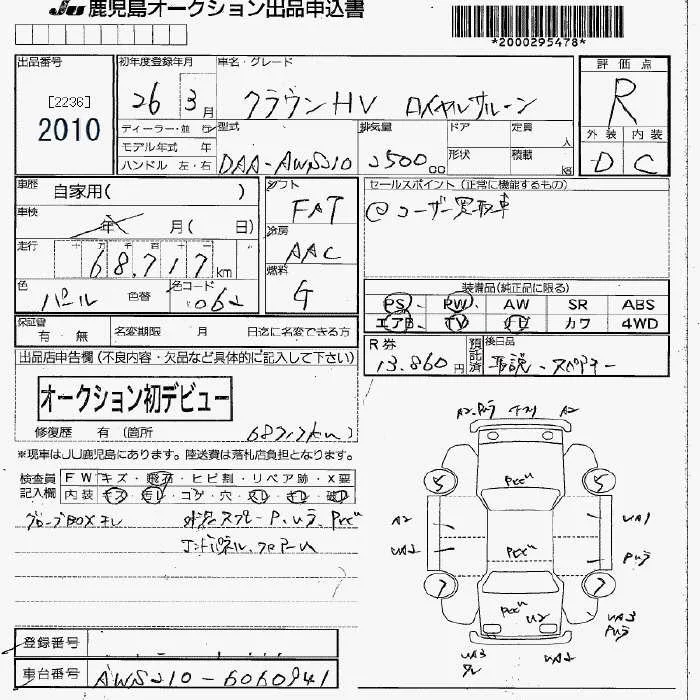 JU 鹿児島オークション出品申込書
*2000295478*
出品番号
[2236]
2010
初年度登録年月
26 3月
車名・グレード
クラウンHV ロイヤルサルーン
評価点
R
外装 内装
D C
ディーラー・並行
モデル年式 年
ハンドル 左・右
型式
DAA-AWS210
排気量
2500cc
ドア
形状
定員 人
積載 kg
車歴 自家用( )
車検 年 月( 日)
走行
68,717km
色
パール
色替
色コード
062
シフト
FAT
冷房
AAC
燃料
G
セールスポイント(正常に機能するもの)
@ユーザー買取車
装備品(純正品に限る)
PS PW AW SR ABS
エアB TV カワ 4WD
保証書
有 無
名変期限 月 日迄に名変できる方
R券
13,860円
預託済
後日品
取説
出品店申告欄(不良内容・欠品など具体的に記入して下さい)
オークション初デビュー
修復歴 有(箇所 68717km)
※現車はJU鹿児島にあります。陸送費は落札店負担となります。
検査員
記入欄
FW キズ・飛石・ヒビ割・リペア跡・X要
内装 キズ・汚レ・コゲ・穴・スレ・キレ・破レ
グローブBOXキレ
A2 A2
5 5
Pｻﾋﾞ
A2 UA1
UA2 Pﾑﾗ
Pｻﾋﾞ
7 7
Pｻﾋﾞ
U2
UA3
Pﾑﾗ
UA3 UA2
登録番号
車台番号 AWS210-6060941